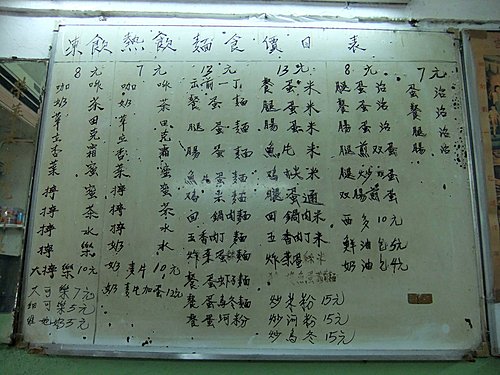 凍飲熱飲麵食價目表
8元
咖啡
奶茶
華田
立克
杏霜
菜蜜
檸蜜
檸茶
檸水
檸樂
大檸樂10元
大可樂7元
細可樂5元
奶5元
7元
咖啡
奶茶
華田
立克
杏霜
菜蜜
檸蜜
檸茶
檸水
奶水
麥片10元
麥片加蛋12元
12元
餐蛋麵
腿蛋麵
腸蛋麵
魚蛋麵
雞菜麵
回鍋肉麵
五香肉丁麵
炸菜肉絲麵
餐蛋蝦子麵
餐蛋烏冬麵
餐蛋河粉
13元
餐蛋米
腿蛋米
腸蛋米
魚片米
雞米
腿蛋通
回鍋肉米
五香肉丁米
炒米粉15元
炒河粉15元
炒烏冬15元
8元
餐蛋治
腿蛋治
腸蛋治
腿煎双蛋
腿炒双蛋
双腸煎蛋
西多10元
鮮油包5元
奶油包4元
7元
蛋治
餐治
腿治
腸治